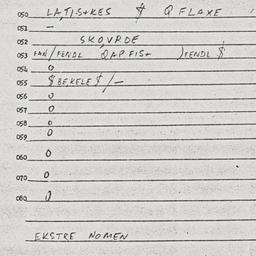 050 LATIS+KES $ Q FLAXE
051 –
052 SKOVRDE
053 FAN/FENDL QAP FIS+ )FENDL $
054 0
055 $ BEKELE $/–
056 0
057 0
058 0
059 0
060 0
070 0
080 0
EKSTRE NOMEN